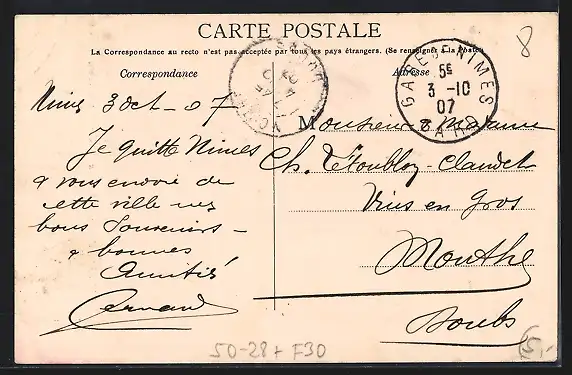 CARTE POSTALE
La Correspondance au recto n'est pas acceptée par tous les pays étrangers. (Se renseigner à la Poste)
Correspondance
Adresse
8
Nimes 3 oct - 07
Je quitte Nimes
& vous envoie de
cette ville mes
bons Souvenirs -
& bonnes
Amitiés
GARE DE NIMES
5E
3 -10
07
GARD
Monsieur & Madame
Ch.
Vins en gros
Mouthe
Doubs
50-28 + F30
5,-